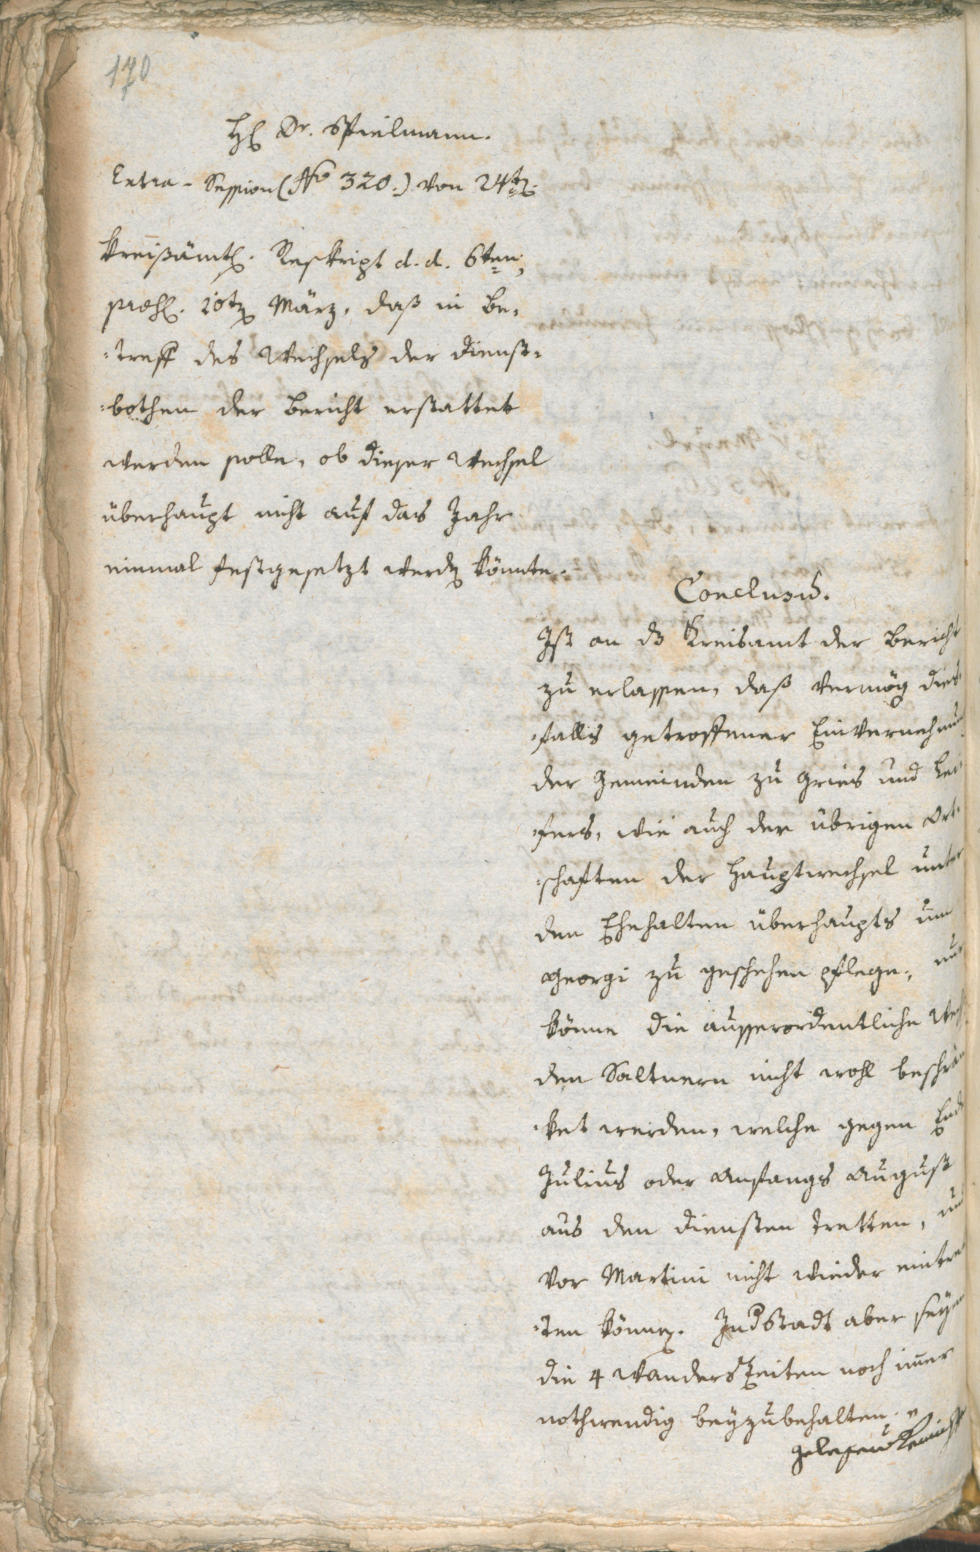 170
H. Dr. Spielmann.
Extra-Session (No 320.) von 24t.
Kreißämtl. Reskript d. d. 6ten,
März, daß in be,
:treff des Wechsels der Dienst=
:bothen der Bericht erstattet
werden solle, ob dieser Wechsel
überhaupt nicht auf das Jahr
einmal festgesetzt werdn könnte.
Conclusū.
Ist an ds Kreisamt der Bericht
zu erlassen, daß vermög dies
:falls getroffener Einvernehmung
der Gemeinden zu Gries und Lei
:fers, wie auch der übrigen Ort
:schaften der Hauptwechsel unter
den Ehehalten überhaupts um
Georgi zu geschehen pflege, nur
könne die ausserordentliche
den Saltnern nicht wohl beschrän
:ket werden, welche gegen End
Julius oder Anfangs August
aus den Diensten tretten, und
vor Martini nicht wieder eintre
:ten könnn. In d Stadt aber seyen
die 4 Wanders Zeiten noch imer
nothwendig beyzubehalten.